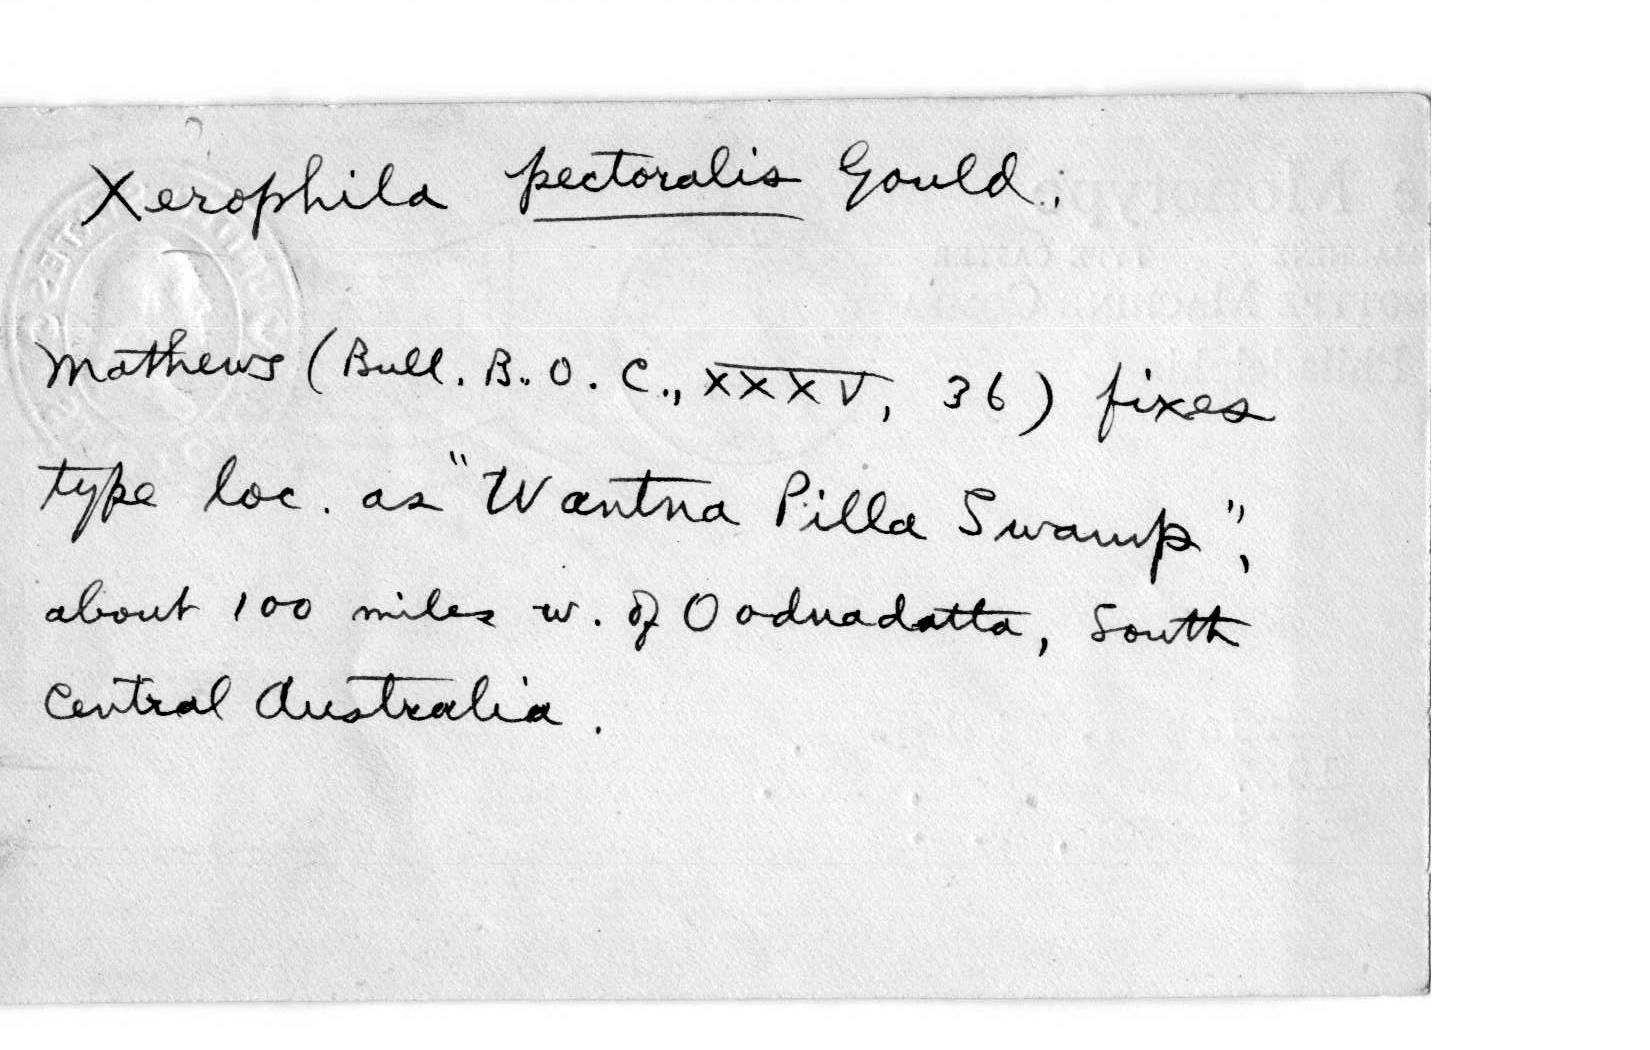 Xerophila pectoralis Gould.
Mathews (Bull. B. O. C., XXXV, 36) fixes
type loc. as "Wantna Pilla Swamp",
about 100 miles w. of Oodnadatta, South
Central Australia.